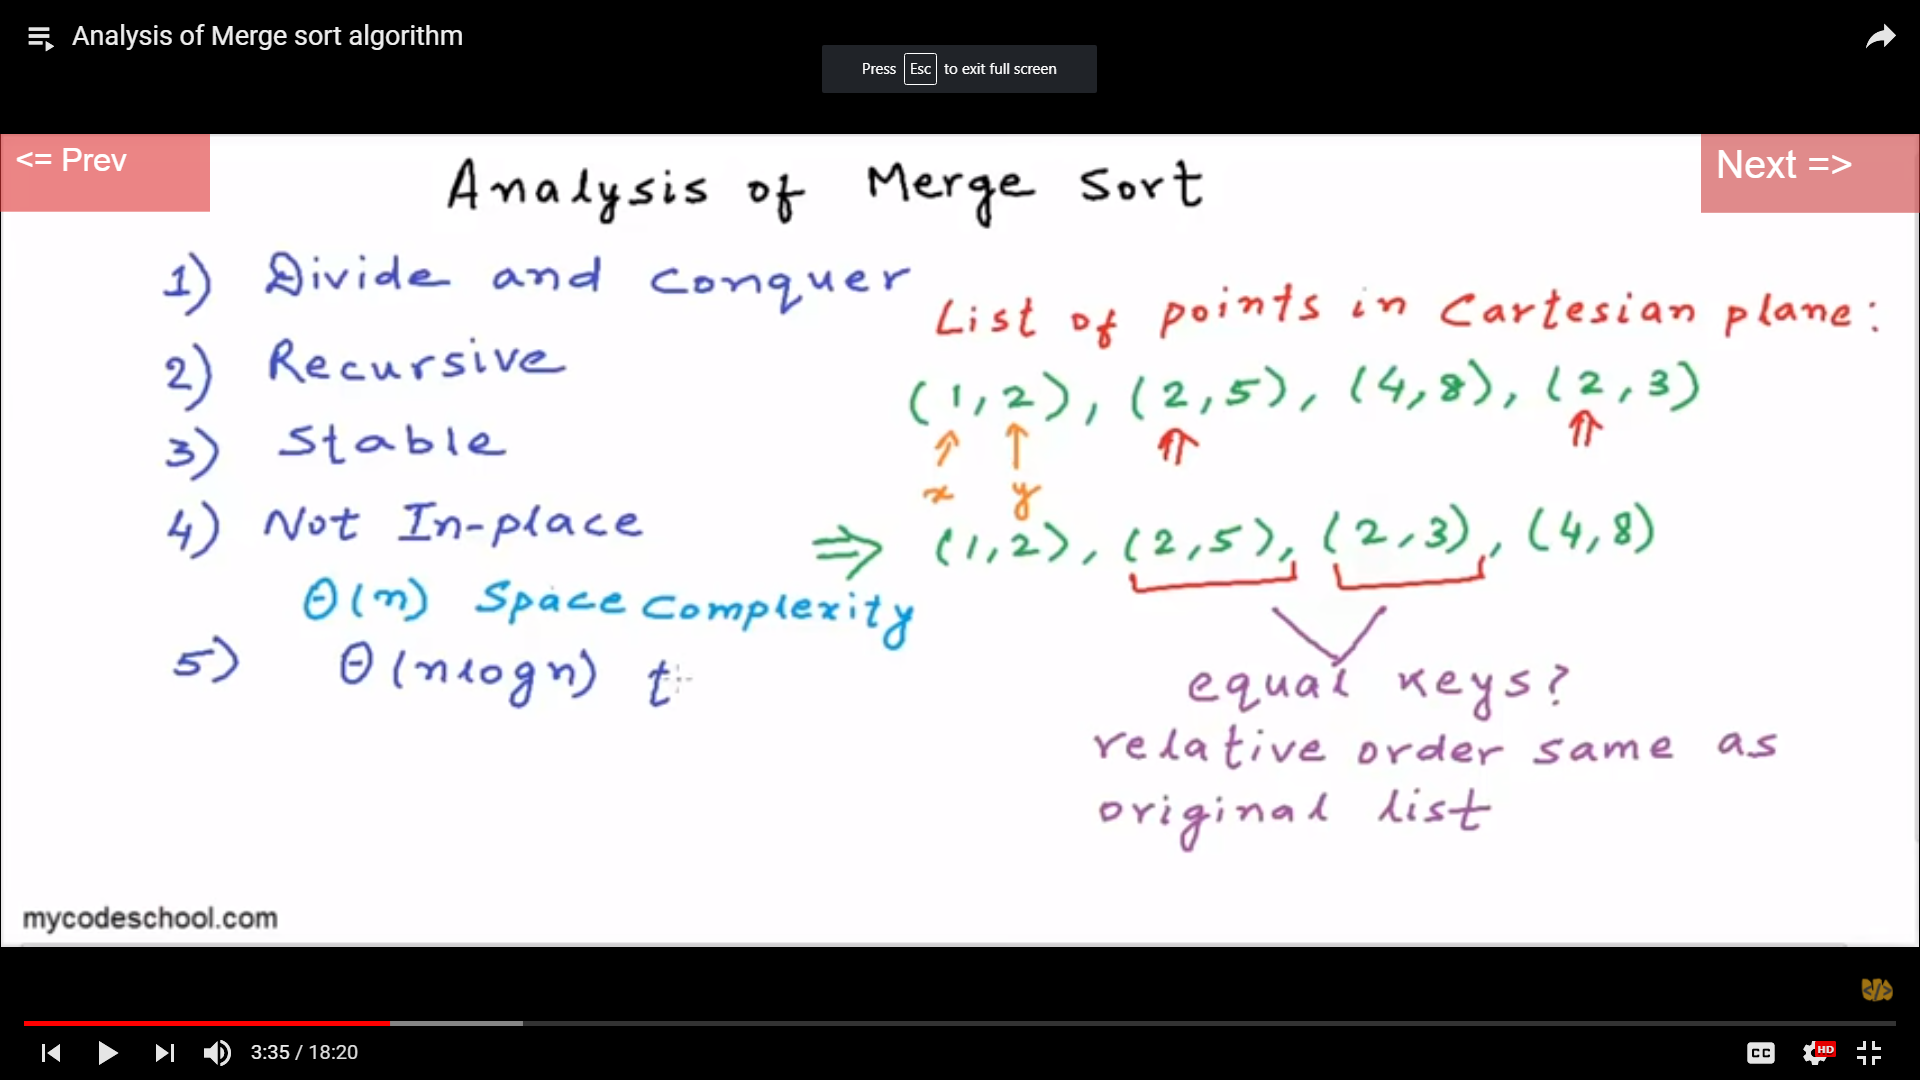 Analysis of Merge sort algorithm
Press Esc to exit full screen
<= Prev
Next =>
Analysis of Merge Sort
1) Divide and conquer
2) Recursive
3) Stable
4) Not In-place
Θ(n) Space complexity
5) Θ(nlogn) t
List of points in Cartesian plane:
(1,2), (2,5), (4,8), (2,3)
x y
⇒ (1,2), (2,5), (2,3), (4,8)
equal keys?
relative order same as
original list
mycodeschool.com
</>
3:35 / 18:20
CC
HD